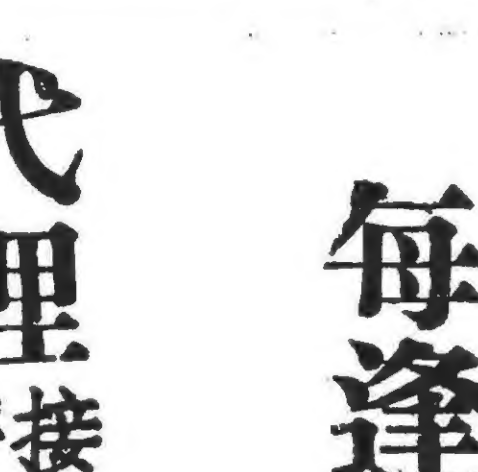 每逢
代理
接